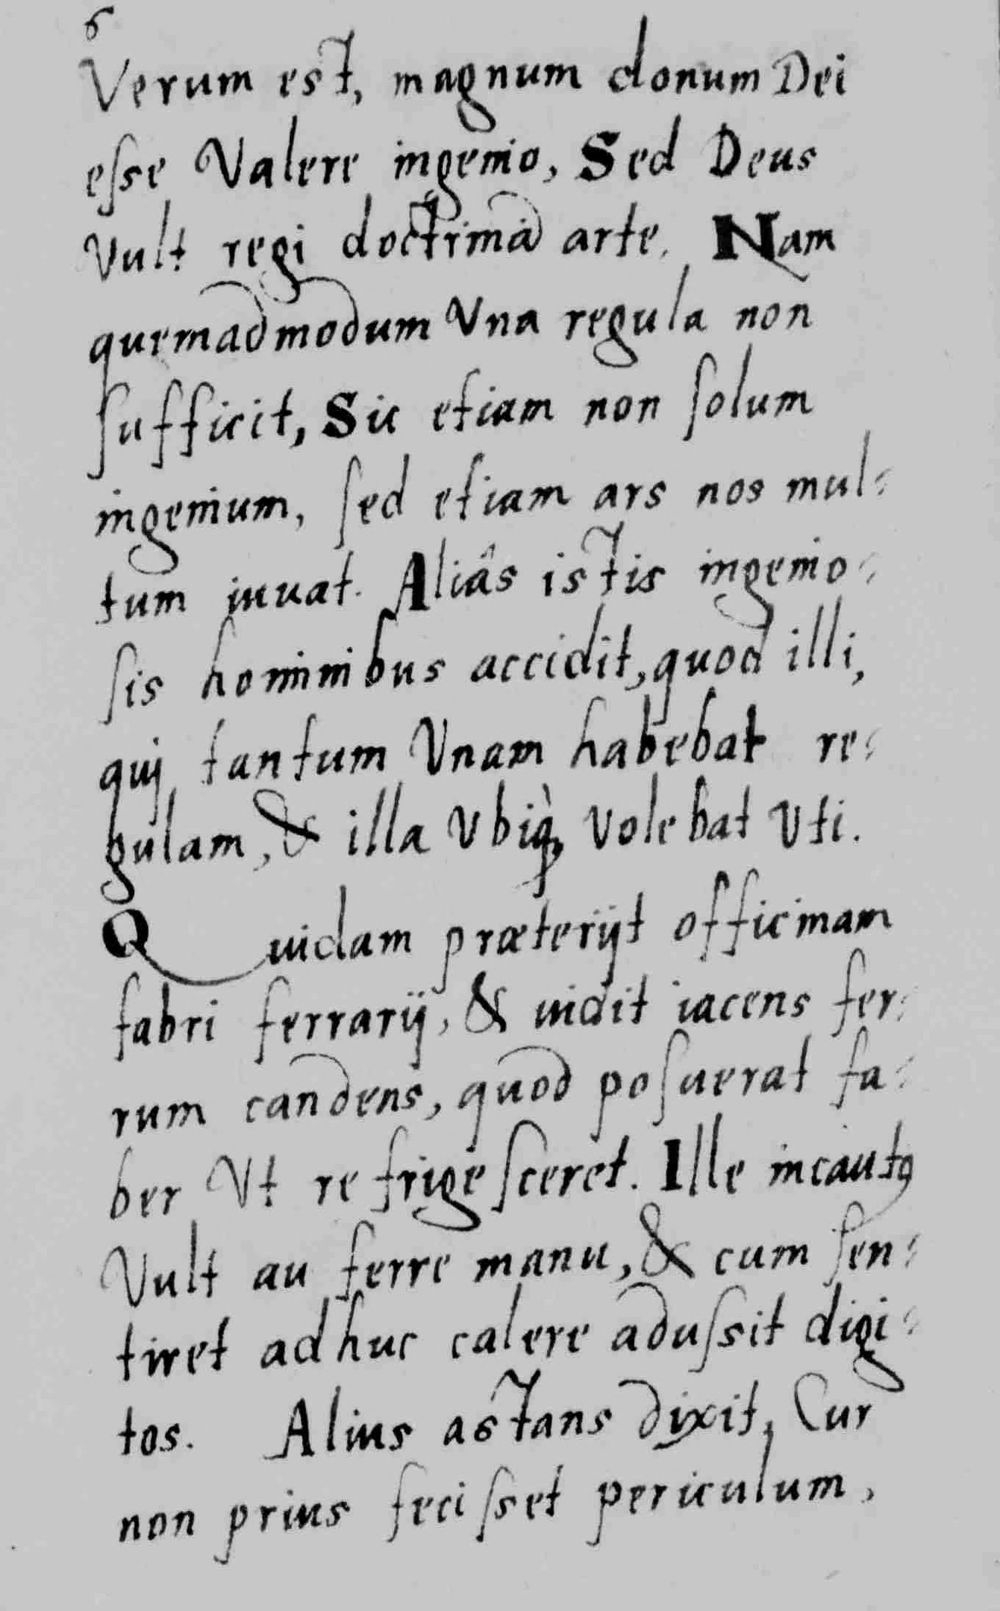 6
Verum est, magnum donum Dei
eſse Valere ingenio, Sed Deus
Vult regi doctrina arte. Nam
quemadmodum Vna regula non
ſufficit, Sic etiam non ſolum
ingenium, ſed etiam ars nos mul⸗
tum iuuat. Aliâs istis ingenio⸗
ſis hominibus accidit, quod illi,
qui tantum Vnam habebat re⸗
gulam, & illa Vbiq̀ꝫ Volebat Vti.
Quidam præterijt officinam
fabri ferrarij, & uidit iacens fer⸗
rum candens, quod poſuerat fa⸗
ber Vt refrigeſceret. Ille incautꝰ
Vult auferre manu, & cum ſen⸗
tiret adhuc calere aduſsit digi⸗
tos. Alius astans dixit, Cur
non prius feciſset periculum,